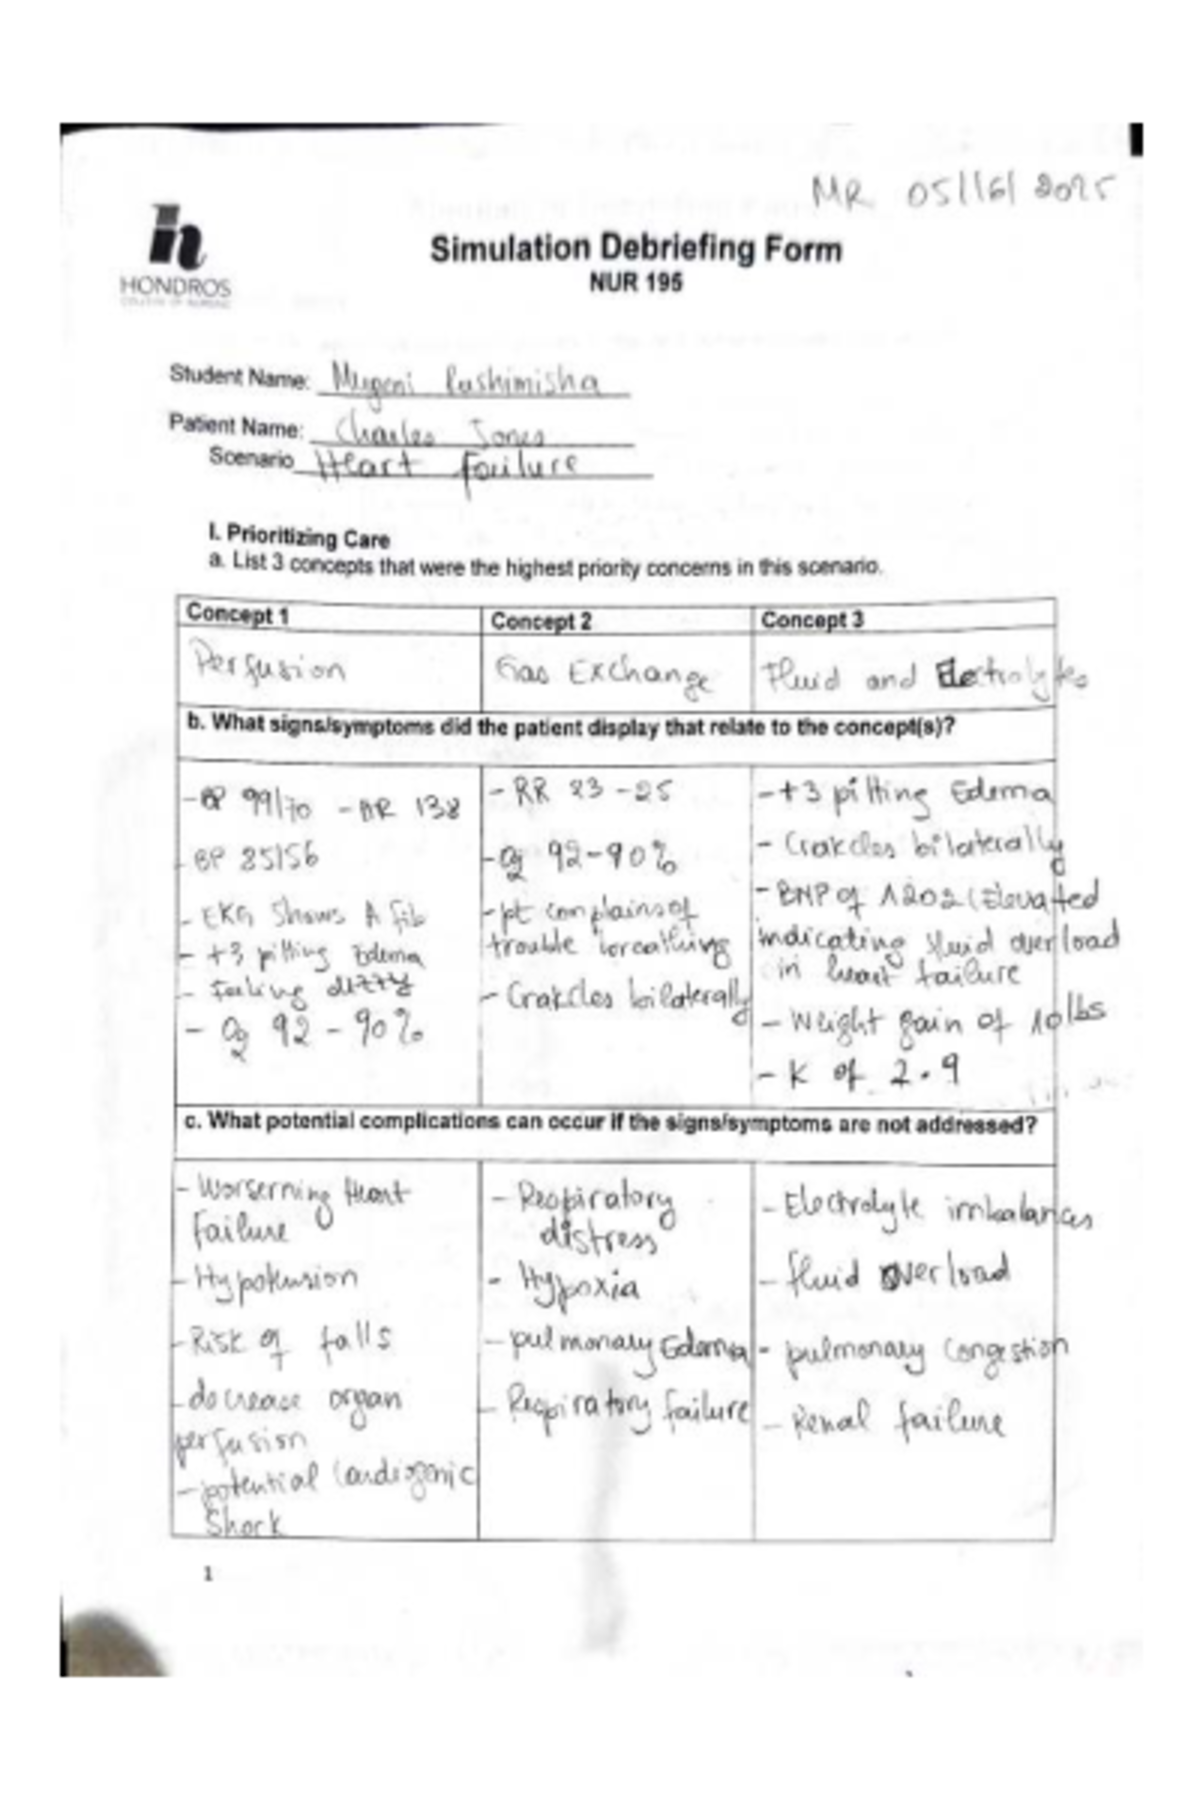 MR 05/16/2025
HONDROS
COLLEGE OF NURSING
Simulation Debriefing Form
NUR 195
Student Name: Mugeni Rushimisha
Patient Name: Charles Jones
Scenario Heart Failure
I. Prioritizing Care
a. List 3 concepts that were the highest priority concerns in this scenario.
Concept 1
Concept 2
Concept 3
Perfusion
Gas Exchange
Fluid and Electrolytes
b. What signs/symptoms did the patient display that relate to the concept(s)?
- BP 99/70 - HR 138
- BP 85/56
- EKG Shows A fib
- +3 pitting Edema
- Feeling dizzy
- O2 92 - 90%
- RR 23 - 25
- O2 92 - 90%
- pt complains of
trouble breathing
- Crakcles bilaterally
- +3 pitting Edema
- Crakcles bilaterally
- BNP of 1202 (Elevated
indicating fluid overload
in heart failure
- Weight gain of 10lbs
- K of 2.9
c. What potential complications can occur if the signs/symptoms are not addressed?
- Worserning Heart
Failure
- Hypotension
- Risk of falls
- decrease organ
perfusion
- potential Cardiogenic
Shock
- Respiratory
distress
- Hypoxia
- pulmonary Edema
- Respiratory failure
- Electrolyte imbalances
- fluid overload
- pulmonary Congestion
- Renal failure
1